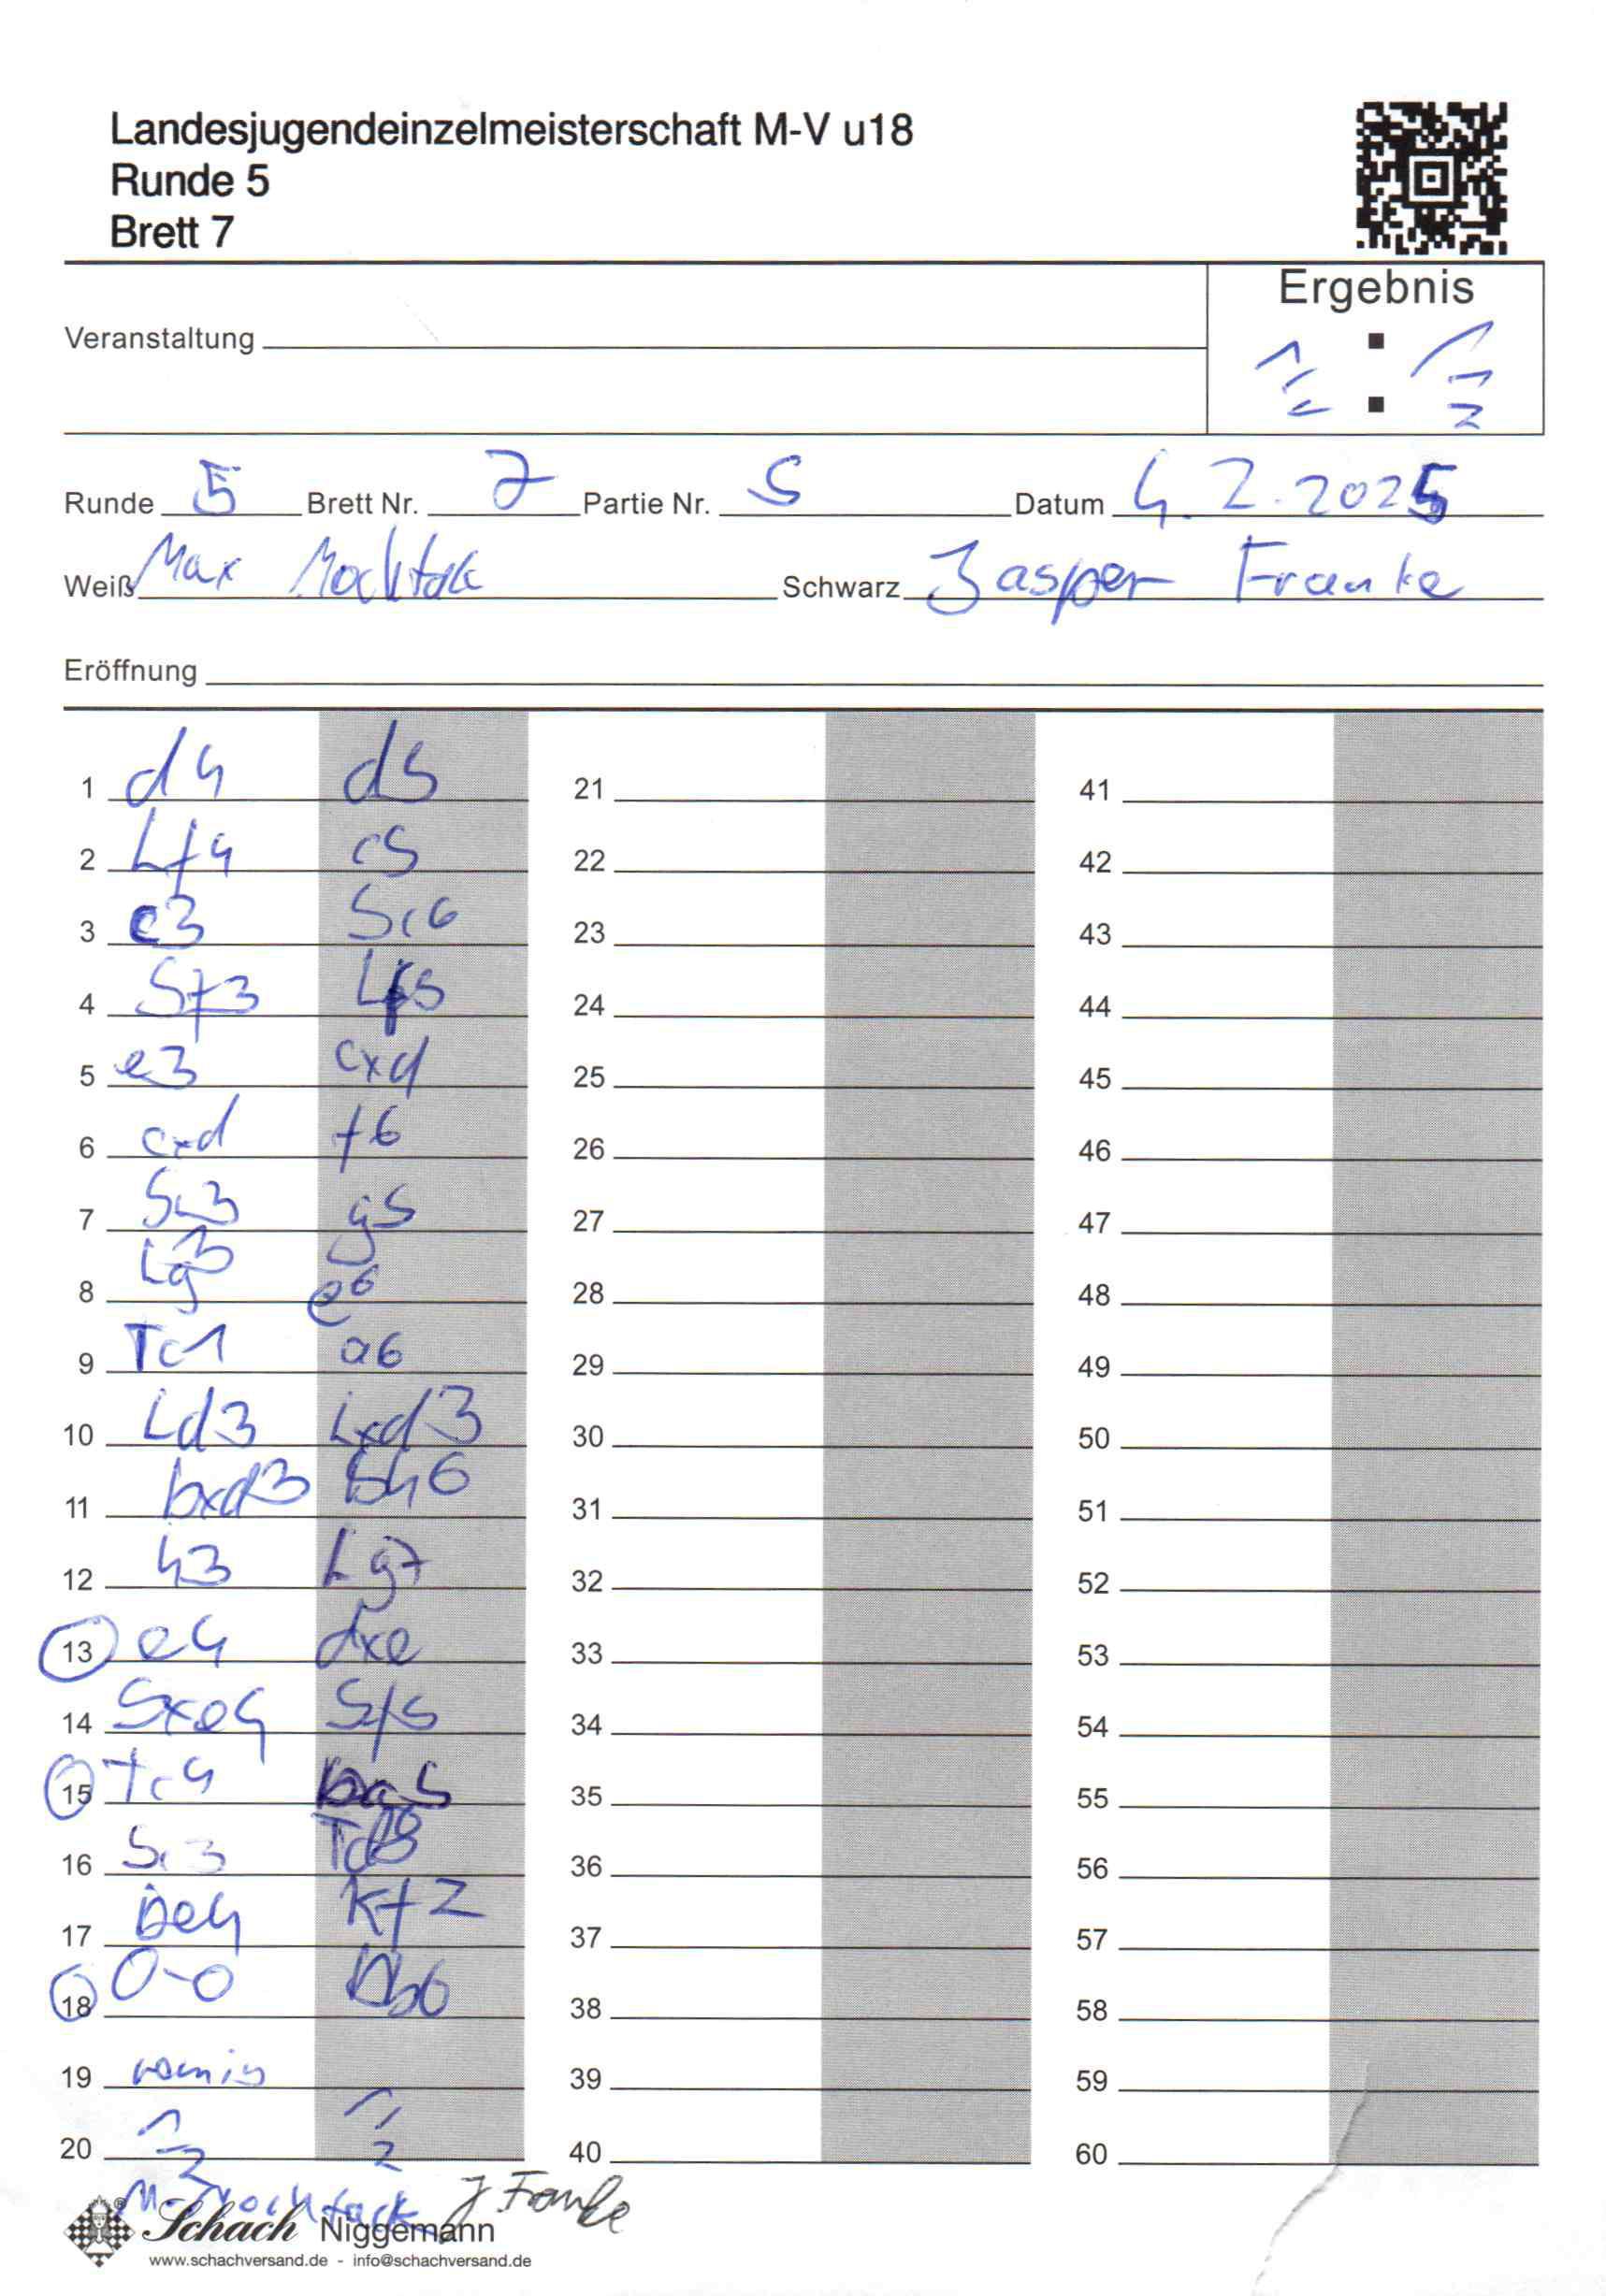 Landesjugendeinzelmeisterschaft M-V u18
Runde 5
Brett 7
Ergebnis
Veranstaltung
1/2 : 1/2
Runde 5 Brett Nr. 7 Partie Nr. 5 Datum 4.2.2025
Weiß Max Schwarz Jasper Franke
Eröffnung
1 d4 d5 21 41
2 Lf4 c5 22 42
3 c3 Sc6 23 43
4 Sf3 Lf5 24 44
5 e3 cxd 25 45
6 cxd f6 26 46
7 Sc3 g5 27 47
8 Lg3 e6 28 48
9 Tc1 a6 29 49
10 Ld3 Lxd3 30 50
11 Dxd3 Sh6 31 51
12 h3 Lg7 32 52
13 e4 dxe 33 53
14 Sxe4 Sf5 34 54
15 Tc4 Da5 35 55
16 Sc3 Td8 36 56
17 De4 Kf7 37 57
18 0-0 Db6 38 58
19 remis 39 59
20 1/2 1/2 40 60
J Franke
Schach Niggemann
www.schachversand.de - info@schachversand.de